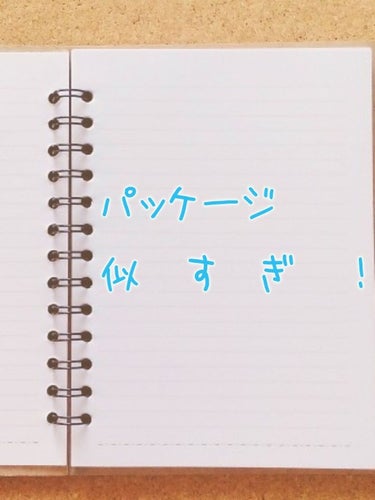 パッケージ
似すぎ！